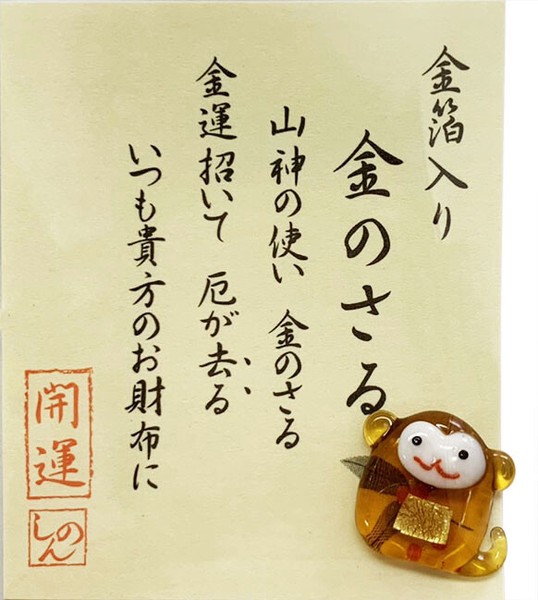 金箔入り
金のさる
山神の使い 金のさる
金運招いて 厄が去る
いつも貴方のお財布に
開運
しのん